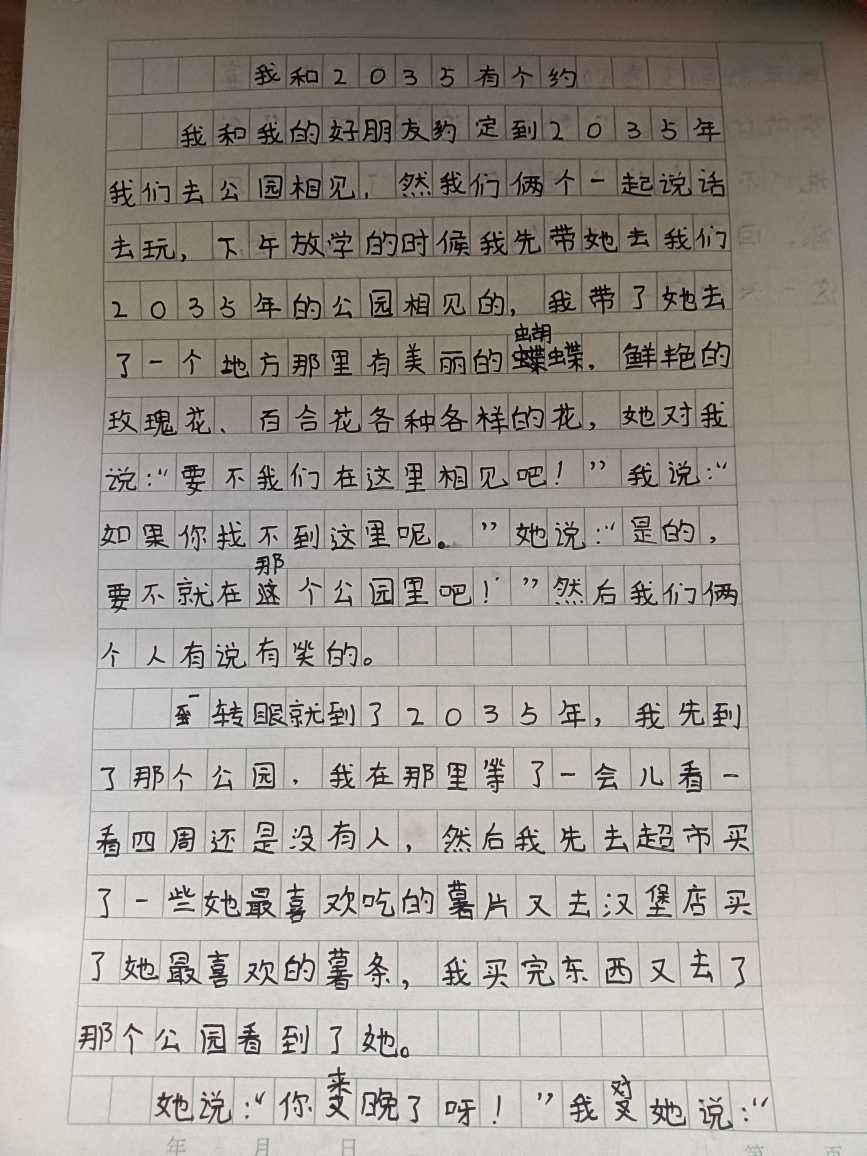 我和2035有个约
我和我的好朋友约定到2035年
我们去公园相见，然我们俩个一起说话
去玩，下午放学的时候我先带她去我们
2035年的公园相见的，我带了她去
了一个地方那里有美丽的蝴蝶，鲜艳的
玫瑰花、百合花各种各样的花，她对我
说：“要不我们在这里相见吧！”我说：“
如果你找不到这里呢。”她说：“是的，
要不就在那个公园里吧！”然后我们俩
个人有说有笑的。
一转眼就到了2035年，我先到
了那个公园，我在那里等了一会儿看一
看四周还是没有人，然后我先去超市买
了一些她最喜欢吃的薯片又去汉堡店买
了她最喜欢的薯条，我买完东西又去了
那个公园看到了她。
她说：“你来晚了呀！”我对她说：“
年 月 日 第 页